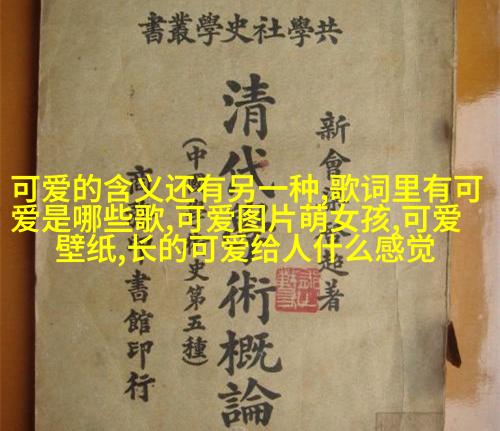 共學社史學叢書
新會超著
清代學術概論
(中史第五種)
商書館印行
可爱的含义还有另一种,歌词里有可
爱是哪些歌,可爱图片萌女孩,可爱
壁纸,长的可爱给人什么感觉